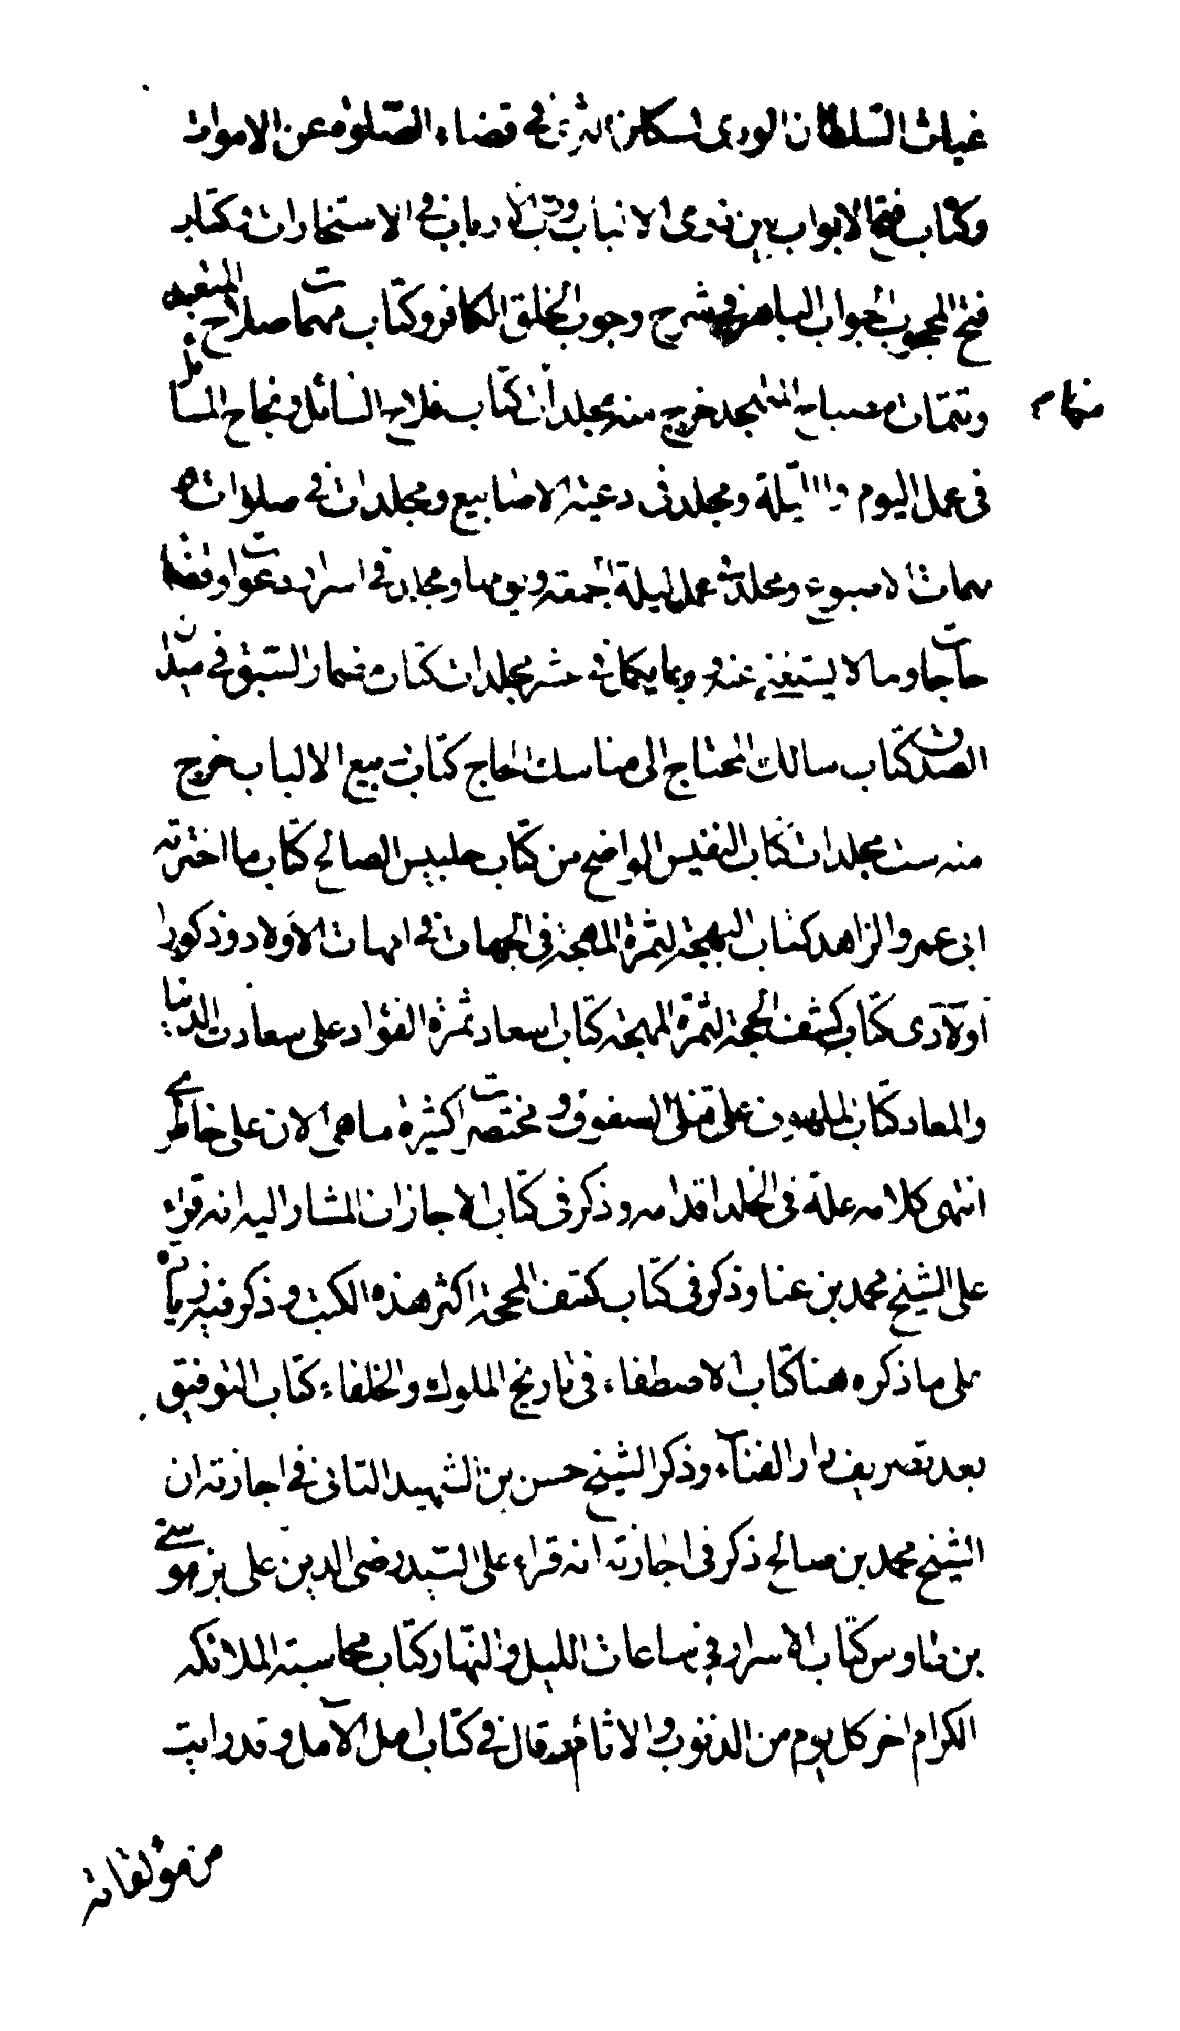 غياث السلطان الورى لسكان الثرى في قضاء الصلوة عن الاموات
وكتاب فتح الابواب بين ذوى الالباب ورب الارباب في الاستخارات كتاب
فتح المحجوب الجواب الباهر في شرح وجوب الخلق الكافر وكتاب مهمات صلاح المتعبد
وتتمات مصباح المتهجد خرج منه مجلدات كتاب فلاح السائل ونجاح المسائل
في عمل اليوم والليلة ومجلد في دعية الاسابيع ومجلدات في صلوات
مهمات الاسبوع ومجلدت عمل ليلة الجمعه ويومها ومجلد في اسرار دعوات وقضا
حاجات وما لا يستغنى عنه وربما يكمل في عشر مجلدات كتاب مضمار السبق في ميدان
الصدق كتاب سالك المحتاج الى مناسك الحاج كتاب ربيع الالباب خرج
منه ست مجلدات كتاب النفيس الواضح من كتاب جليس الصالح كتاب ما اخترته
ابى عمرو الزاهد كتاب البهجة لثمرة المهجة في الجهات في امهات الاولاد وذكور
اولادى كتاب كشف الحجة لثمرة المهجة كتاب اسعاد ثمرة الفؤاد على سعادت الدنيا
والمعاد كتاب الملهوف على قتلى الطفوف و مختصرات كثيرة ما هي الان على خاطرى
انتهى كلامه علة في الخلد اقدامه وذكر في كتاب الاجازات المشار اليه انه قرء
على الشيخ محمد بن نما وذكر في كتاب كشف المحجة اكثر هذه الكتب وذكر فيه زيادة
على ما ذكره هنا كتاب الاصطفاء في تاريخ الملوك والخلفاء كتاب التوفيق
بعد تصريف دار الفناء وذكر الشيخ حسن بن الشهيد الثانى في اجازته ان
الشيخ محمد بن صالح ذكر في اجازته انه قراء على السيد رضى الدين على بن موسى
بن طاوس كتاب الاسرار في ساعات الليل والنهار كتاب محاسبة الملائكه
الكرام اخر كل يوم من الذنوب والاثام وقال في كتاب امل الآمل وقد رايت
من مؤلفاته